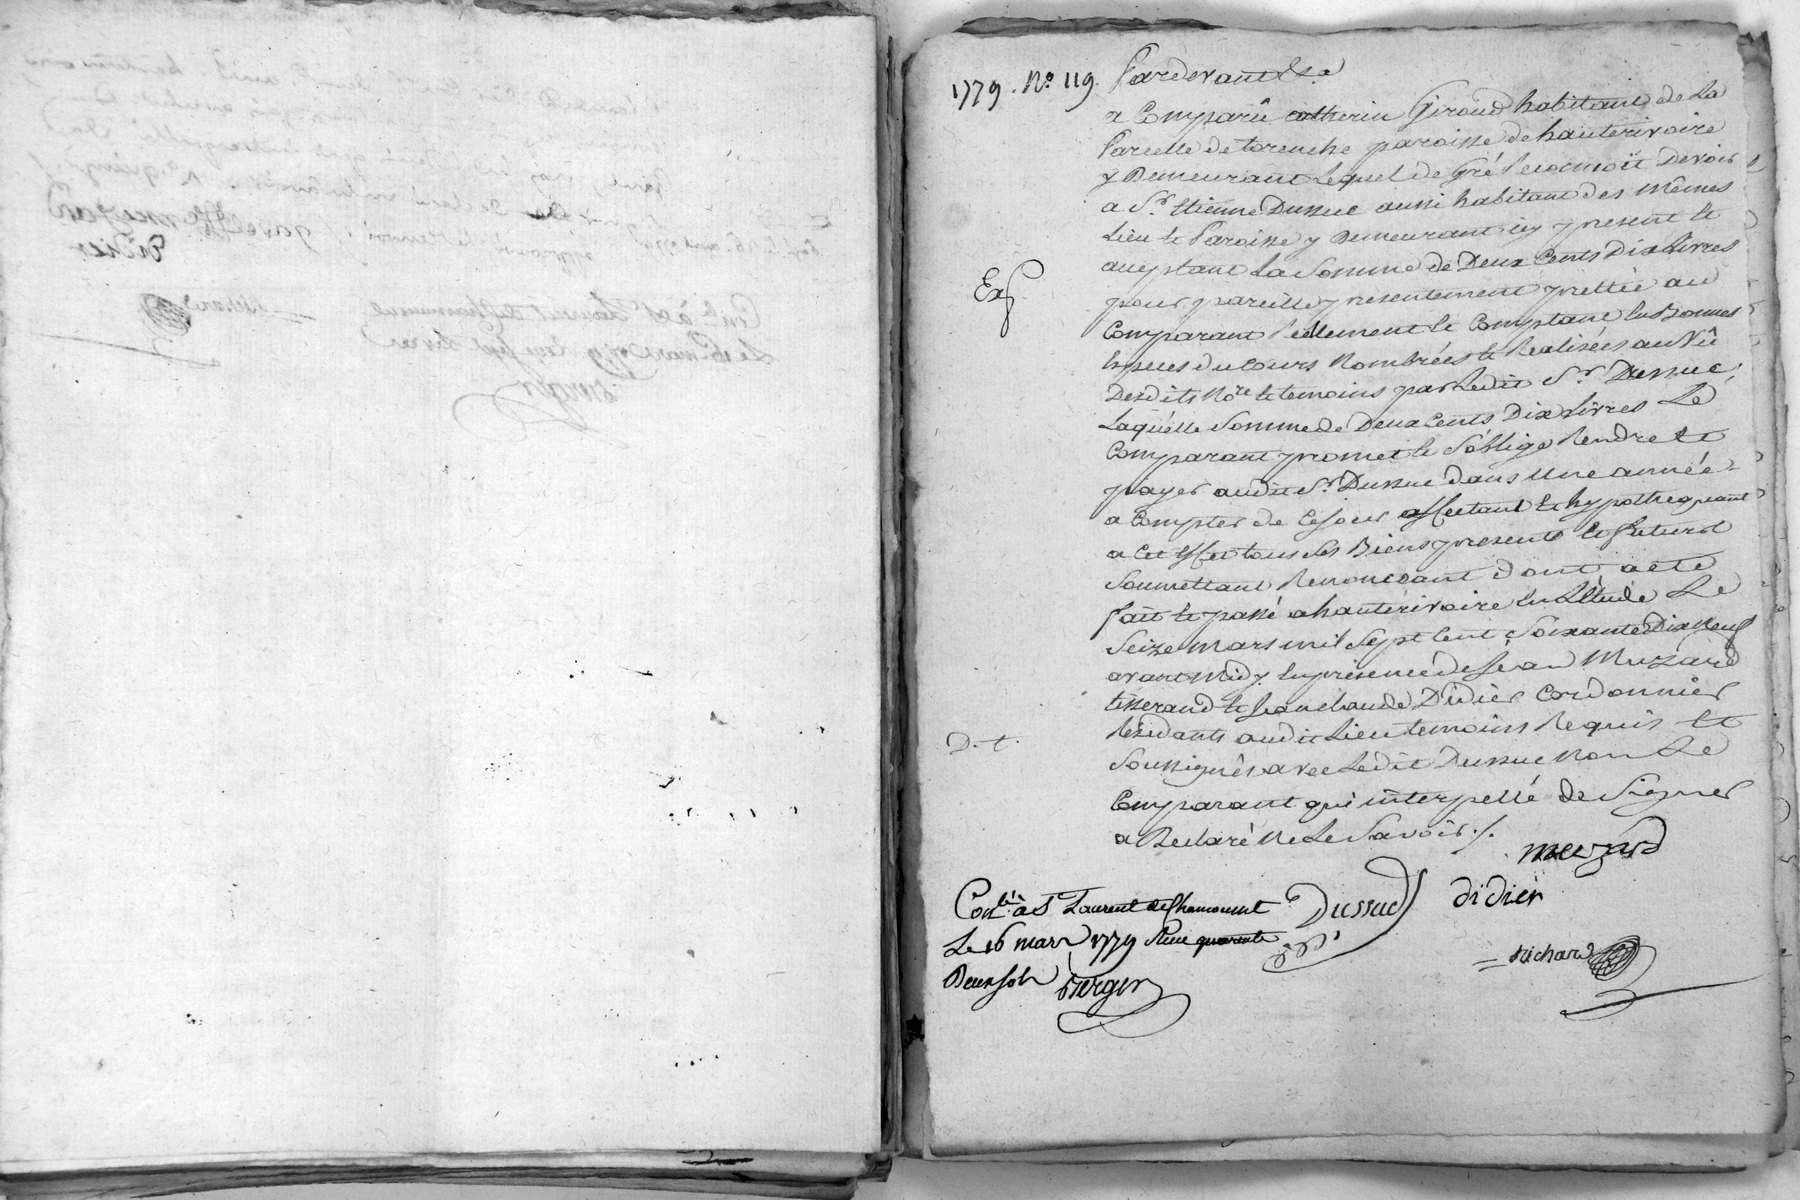 1779. No. 119. Pardevant &a
a Comparû catherin Giroud habitant de La
Parcelle de torenche paroisse de hauterivoire
y Demeurant Lequel de Gré Reconnoit Devoir
a Sr. Etienne Dussuc aussi habitant des Mêmes
Lieu et Paroisse y Demeurant icy present et
aceptant La Somme de Deux Cents Dix Livres
pour pareille presentement prettée au
Comparant reellement et Comptant En Bonnes
Especes du Cours Nombrées et Realisées au Vû
Desdits Nore. et temoins par Ledit Sr. Dussuc,
Laquelle Somme de Deux Cents Dix Livres Le
Exp.
Comparant promet et S'oblige Rendre et
payer audit Sr. Dussuc dans Une année
a Compter de Ce jour affectant et hypothequant
a Cet Effet tous Ses Biens presents et futurs
Soumettant Renonceant dont acte
fait et passé a hauterivoire En L'Etude Le
Seize mars mil Sept Cent Soixante Dix Neuf
avant Midy En presence de Jean Muzard
tisserand et Jean claude Didier Cordonnier
D. t.
Residants audit Lieu temoins Requis et
Soussignés avec Ledit Dussuc Non Le
Comparant qui interpellé de Signer
a Declaré Ne Le Savoir ./.
Muzard
Dussuc
didier
Conlé. à St Laurent de Chamousset
Le 16 mars 1779 Reçu quarante
Deux sols Berger
Richard